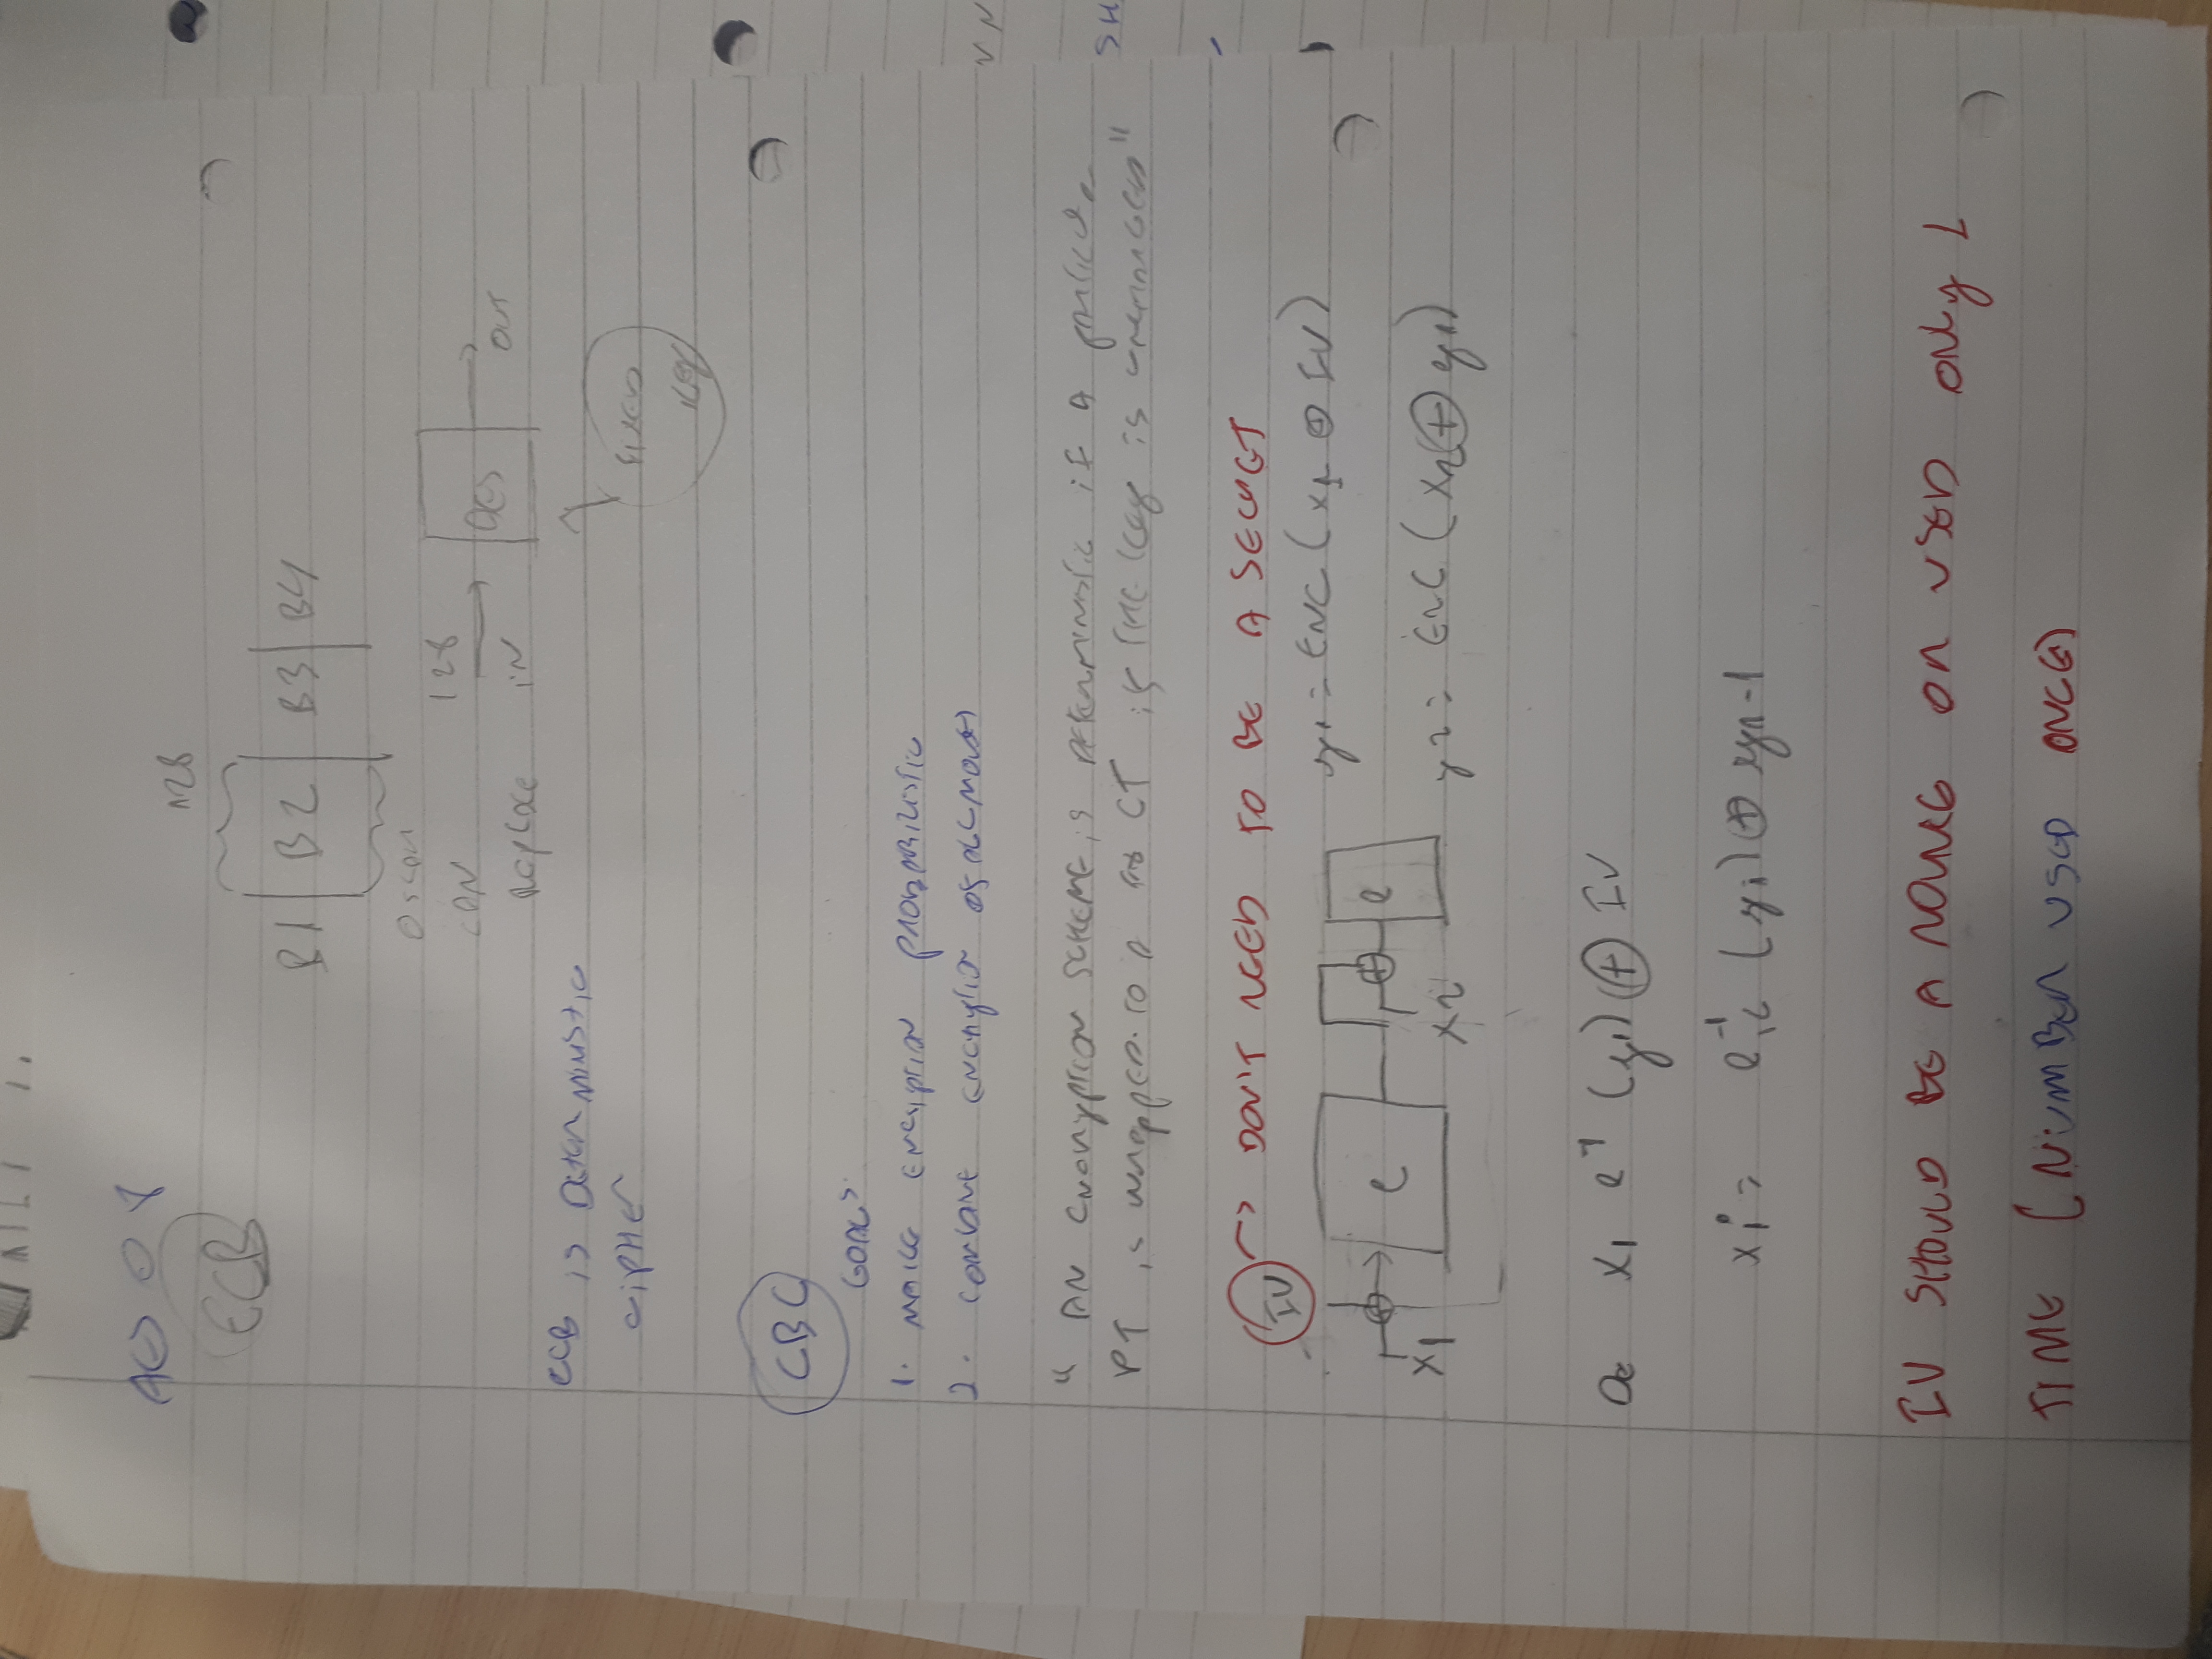 ECB
128
B1 | B2 | B3 | B4
Oscar
CAN
Replace
128
IN
AES
OUT
FIXED
Key
ECB is Deterministic
CIPHER
CBC
GOALS
1. MAKE ENCRYPTION PROBABILISTIC
2. COMBINE ENCRYPTION OF ALL
" AN ENCRYPTION SCHEME IS DETERMINISTIC IF A
PT is to a CT if THE Key is "
IV → DON'T NEED TO BE A SECRET
y1 = ENC (x1 ⊕ IV)
e
e
x1
x2
y2 = ENC (x2 ⊕ y1)
x1 e⁻¹ (y1) ⊕ IV
xi = e⁻¹k (yi) ⊕ yn-1
IV SHOULD BE A OR USED ONLY 1
TIME (NUMBER USED ONCE)
SH